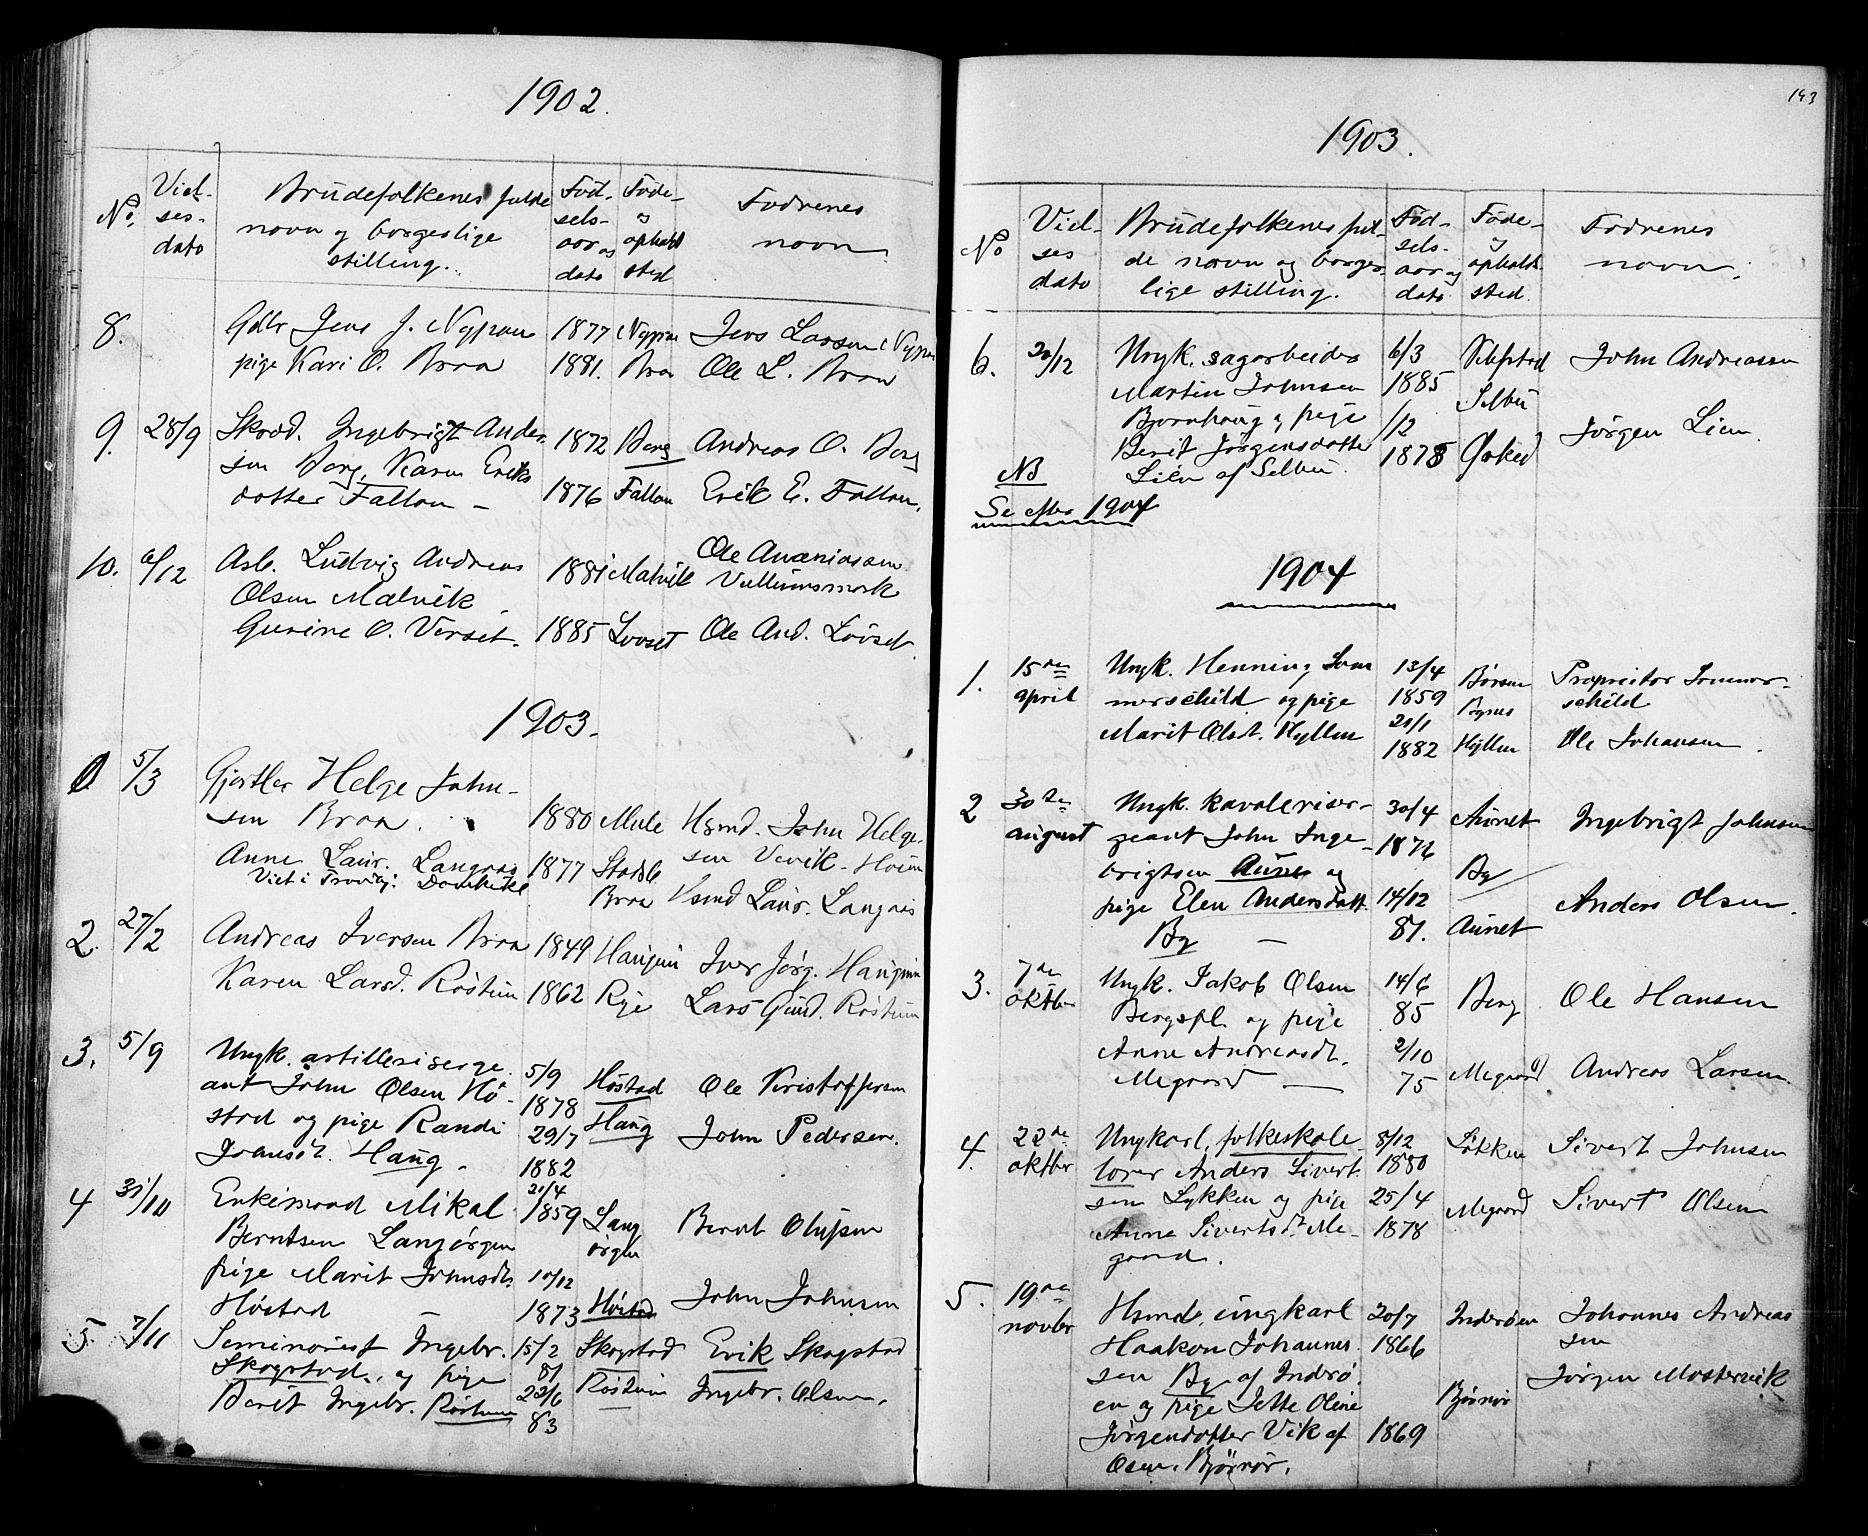 1902.
No.
Viel-
ses-
dato
Brudefolkenes fulde
navn og borgerlige
stilling.
Fød-
sels-
aar og
dato
Føde-
og
opholds
sted
Fædrenes
navn
8.
Gdbr Jens J. Nypan
pige Kari O. Braa
1877
1881.
Nypan
Braa
Jens Larsen Nypan
Ole L. Braa
9.
28/9
Skræd. Ingebrigt Ander-
sen Berg, Karen Eriks
datter Fallan -
1872
1876
Berg
Fallan
Andreas O. Berg
Erik E. Fallan.
10.
6/12
Arb. Ludvig Andreas
Olsen Malvik
Gurine O. Verset.
1881
1885
Malvik
Lovset
Ole Ananiasen
Ole And. Lovset.
1903.
1
5/3
Gjørtler Helge John-
sen Braa.
Anne Laur. Langnas
Viet i Trondhj: Domkirke
1880
1877
Mule
Stadsb
Braa
Hsmd. John Helge-
sen Vevik-
Hsmd Laur. Langnæs
2.
27/2
Andreas Iversen Braa
Karen Larsd. Røstum
1849
1862
Haugum
Rye
Iver Jørg. Haugum
Lars Gund. Røstum
3.
5/9
Ungk. artillerisserge-
ant John Olsen Hø-
stad og pige Randi
Johnsdt. Haug.
5/9
1878
29/7
1882
Høstad
Haug
Ole Kristoffersen
John Pedersen.
4
31/10
Enkemand Mikal
Berntsen Langørgen
pige Marit Johnsdt.
Høstad
21/4
1859
10/12
1873
Lang
ørgen
Høstad
Bernt Olufsen
John Johnsen
5.
7/11
Seminarist Ingebr.
Skogstad, og pige
Berit Ingebr. Røstum
15/2
81
22/6
83
Skogstad
Røstum
Erik Skogstad
Ingebr. Olsen.
143
1903.
No
Viel-
ses
dato
Brudefolkenes ful-
de navn og borger-
lige stilling.
Fød-
sels-
aar og
dato
Føde-
og
opholds
sted.
Fædrenes
navn.
6.
20/12
Ungk. sagarbeider
Martin Johnsen
Bjørnhaug og pige
Berit Jørgensdatter
Lien af Selbu.
6/3
1885
/12
1878
Selbu
John Andreassen
Jørgen Lien.
NB
Se efter 1904
1904
1.
15de
april
Ungk. Henning Som
merschild og pige
Marit Olsdt. Hyllen
13/4
1859
21/1
1882
Børsen
Bynes
Hyllen
Proprietær Sommer-
schild
Ole Johansen.
2
30te
august
Ungk. kavaleriser-
geant John Inge-
brigtsen Aunet og
pige Elen Andersdatt.
By -
30/4
1876
14/12
81.
Aunet
By
Aunet
Ingebrigt Johnsen
Anders Olsen.
3.
7de
oktbr
Ungk. Jakob Olsen
Bergspl. og pige
Anne Andreasdt.
Megaard -
14/6
85
2/10
75
Berg
Megaard
Ole Hansen
Andreas Larsen.
4.
22de
oktbr
Ungkarl, folkeskole-
lærer Anders Sivert-
sen Løkken og pige
Anne Sivertsdt. Me-
gaard.
8/12
1880
25/4
1878
Løkken
Megaard
Sivert Johnsen
Sivert Olsen
5.
19de
novbr
Hsmd, ungkarl
Haakon Johannes-
sen By af Inderø-
en og pige Jette Oline
Jørgendatter Vik af
Osen, Bjørnør.
20/7
1866
1869
Inderøen
Bjørnør
Johannes Andreas
sen
Jørgen Mostervik